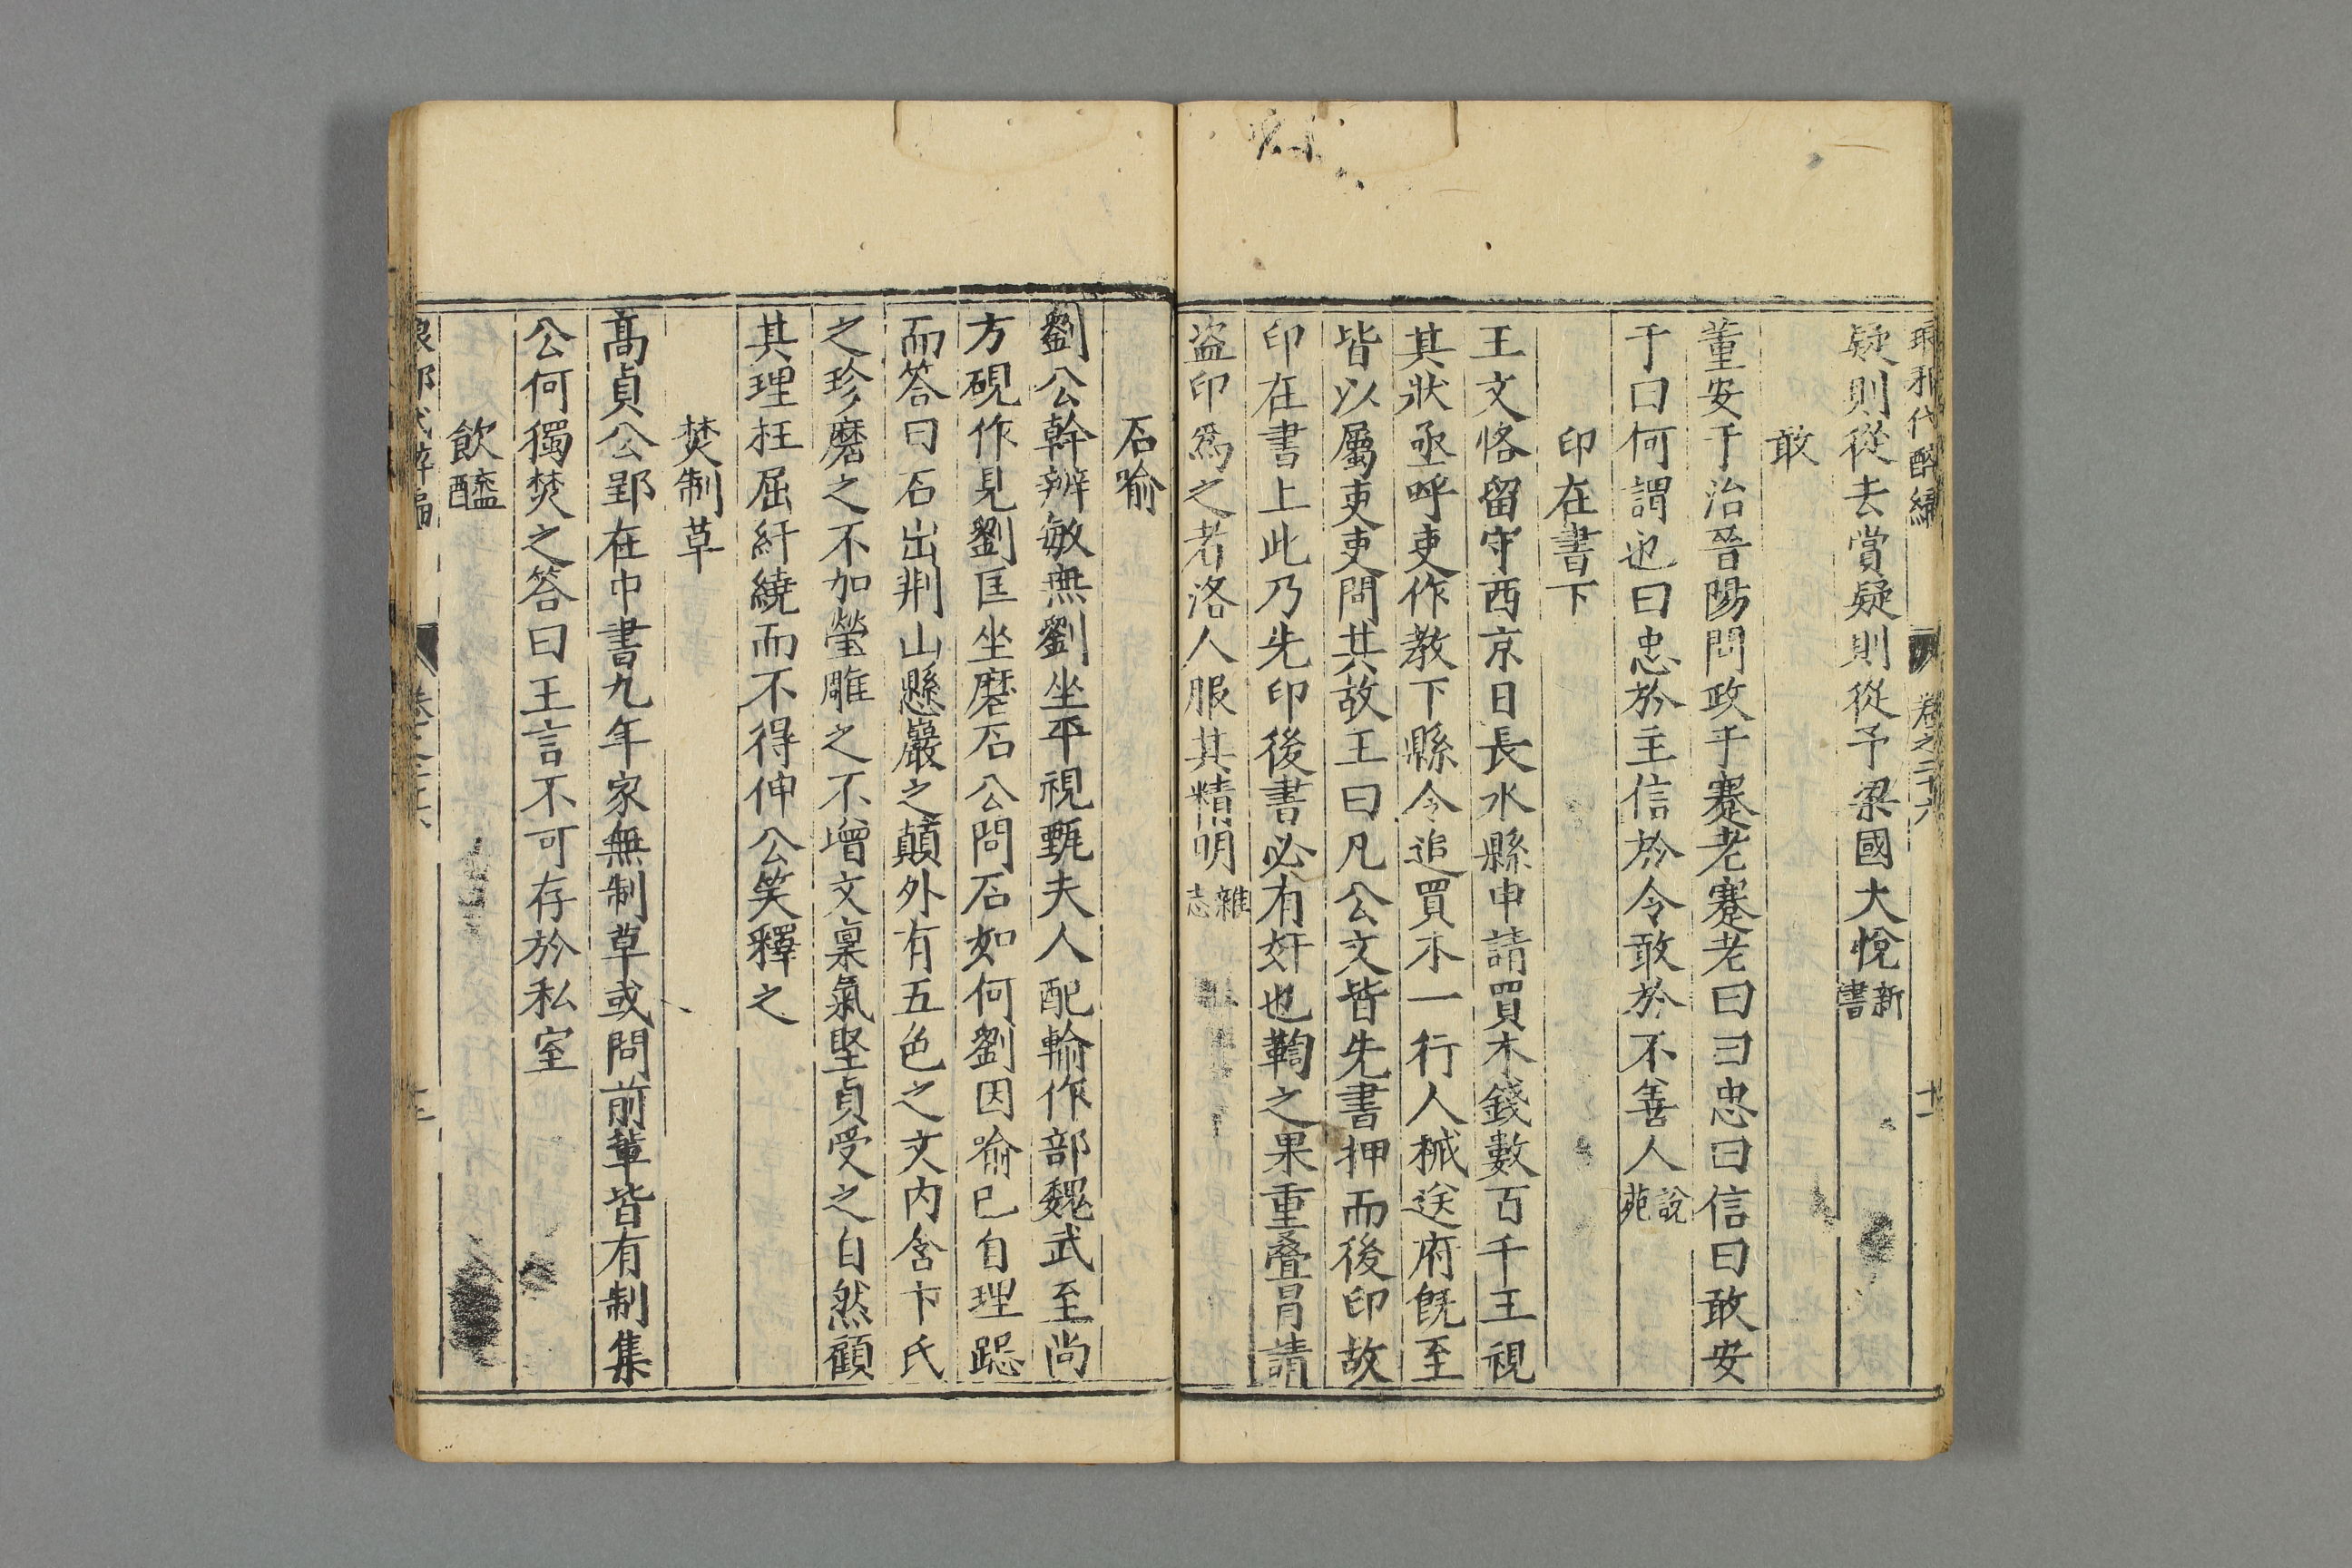 琅邪代醉編 卷之二十六 十一
疑則從去賞疑則從予梁國大悅新書
敢
董安于治晉陽問政于蹇老蹇老曰曰忠曰信曰敢安
于曰何謂也曰忠於主信於令敢於不善人說苑
印在書下
王文恪留守西京日長水縣申請買木錢數百千王視
其狀亟呼吏作教下縣令追買木一行人械送府旣至
皆以屬吏吏問其故王曰凡公文皆先書押而後印故
印在書上此乃先印後書必有奸也鞫之果重疊冐請
盜印爲之者洛人服其精明雜志
石喻
劉公幹辨敏無劉坐平視甄夫人配輸作部魏武至尚
方硯作見劉匡坐磨石公問石如何劉因喻已自理跽
而答曰石出荆山懸巖之顛外有五色之文内含卞氏
之珍磨之不加瑩雕之不增文稟氣堅貞受之自然顧
其理枉屈紆繞而不得伸公笑釋之
焚制草
髙貞公郢在中書九年家無制草或問前輩皆有制集
公何獨焚之答曰王言不可存於私室
飲醯